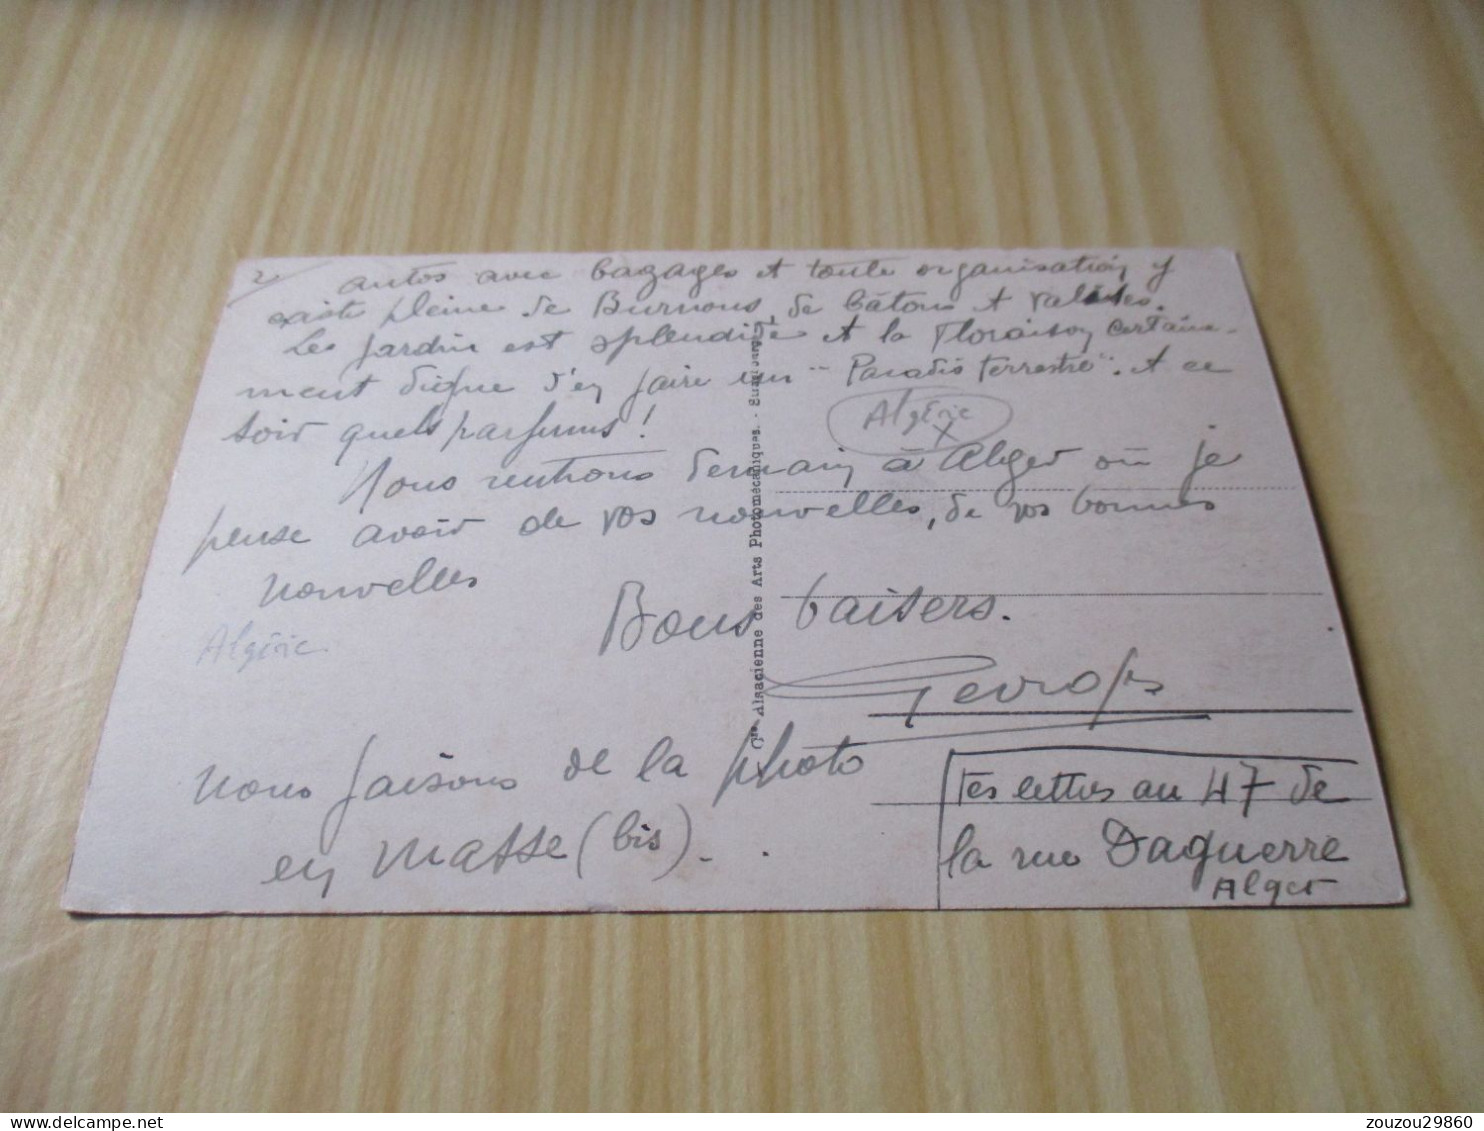 2/ autos avec bagages et toute organisation y
existe pleine de Burnous, de bâtons et valises.
Les jardin est splendide et la Floraison certaine-
ment digne d'en faire un "Paradis terrestre". et ce
soir quels parfums!
Algérie
X
Nous rentrons demain à Alger où je
pense avoir de vos nouvelles, de vos bonnes
nouvelles
Bons baisers.
Algérie
Georges
nous faisons de la photo
en masse (bis). .
tes lettres au 47 de
la rue Daguerre
Alger
Cie Alsacienne des Arts Photomécaniques. -
zouzou29860